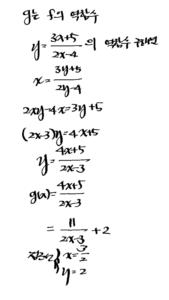 g는 f의 역함수
y = \frac{3x+5}{2x-4} 의 역함수 구하면
x = \frac{3y+5}{2y-4}
2xy-4x=3y+5
(2x-3)y=4x+5
y = \frac{4x+5}{2x-3}
g(x) = \frac{4x+5}{2x-3}
= \frac{11}{2x-3} + 2
점근선 { x = \frac{3}{2}
y = 2